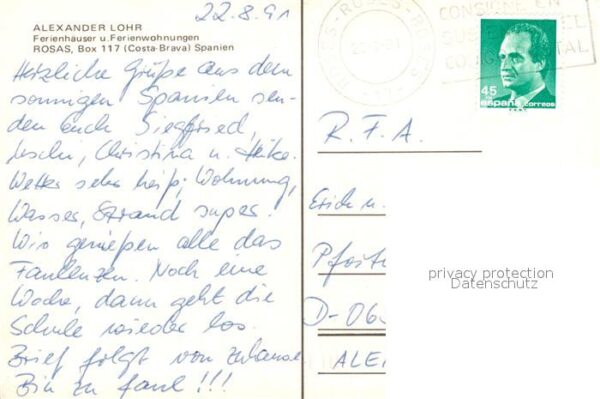 22.8.91
ALEXANDER LOHR
Ferienhäuser u. Ferienwohnungen
ROSAS, Box 117 (Costa-Brava) Spanien
Herzliche Grüße aus dem
sonnigen Spanien sen-
den euch Siegfried,
Christina u. Heike.
Wetter sehr heiß; Wohnung,
Wasser, Strand super!
Wir genießen alle das
Faulenzen. Noch eine
Woche, dann geht die
Schule wieder los.
Brief folgt von zuhause
Bin zu faul!!!
ROSES
CONSIGNE EN
CO POSTAL
45
PTA
españa correos
R.F.A.
Erich u.
D-
ALE
privacy protection
Datenschutz